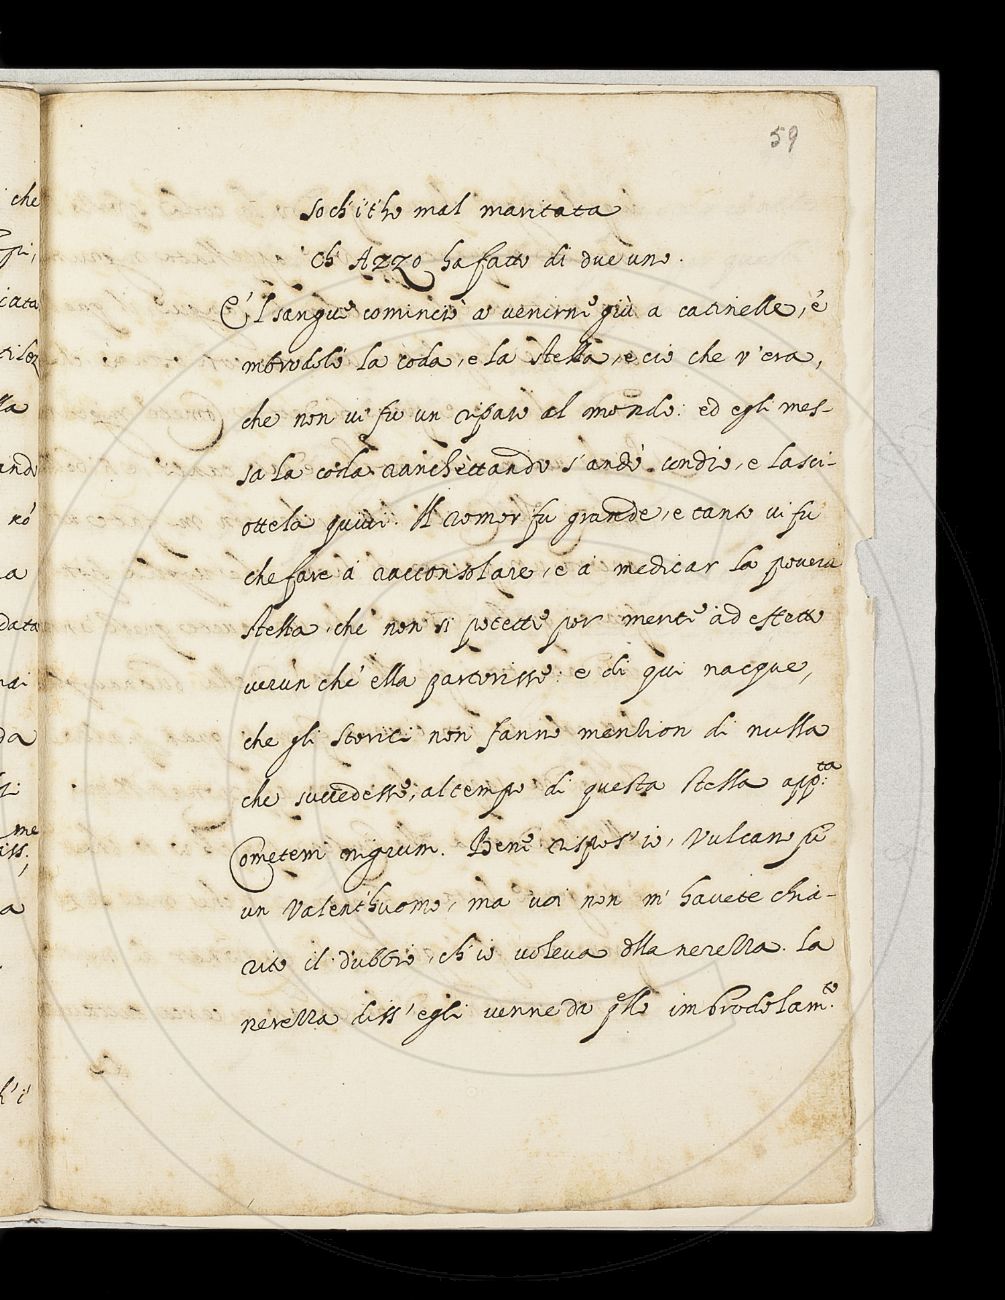 59
so ch'i t'ho mal maritata
Ch' Azzo ha fatto di due uno.
E' l sangue cominciò a venirne giù a catinelle, e
mbrodolò la coda, e la stella, e ciò che v'era,
che non vi fu un riparo al mondo: ed egli mes-
sa la coda ranchettando s'andò condio, e lasci-
ottela quivi. Il romor fu grande, e tanto vi fu
che fare a racconsolare, e a medicar la povera
stella, che non si potette por mente ad effetto
verun che ella partorisse: e di qui nacque,
che gli storici non fanno menzion di nulla
che succedesse, al tempo di questa stella app.ta
Cometem nigrum. Bene rispos' io, Vulcano fu
un Valent'huomo, ma voi non m'havete chia-
rito il dubbio, ch'io voleva dlla nerezza. La
nerezza diss'egli venne da qllo imbrodolam.to
che
icata
lla
ando
rò
a
data
mai
da
me
iss.
a
h' i'